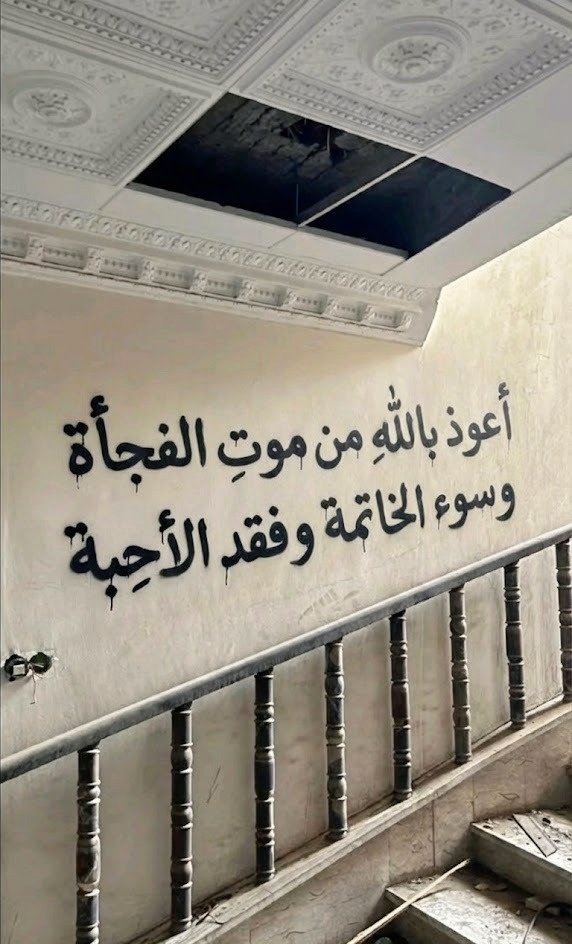 أعوذ باللهِ من موتِ الفجأة
وسوء الخاتمة وفقد الأحِبة